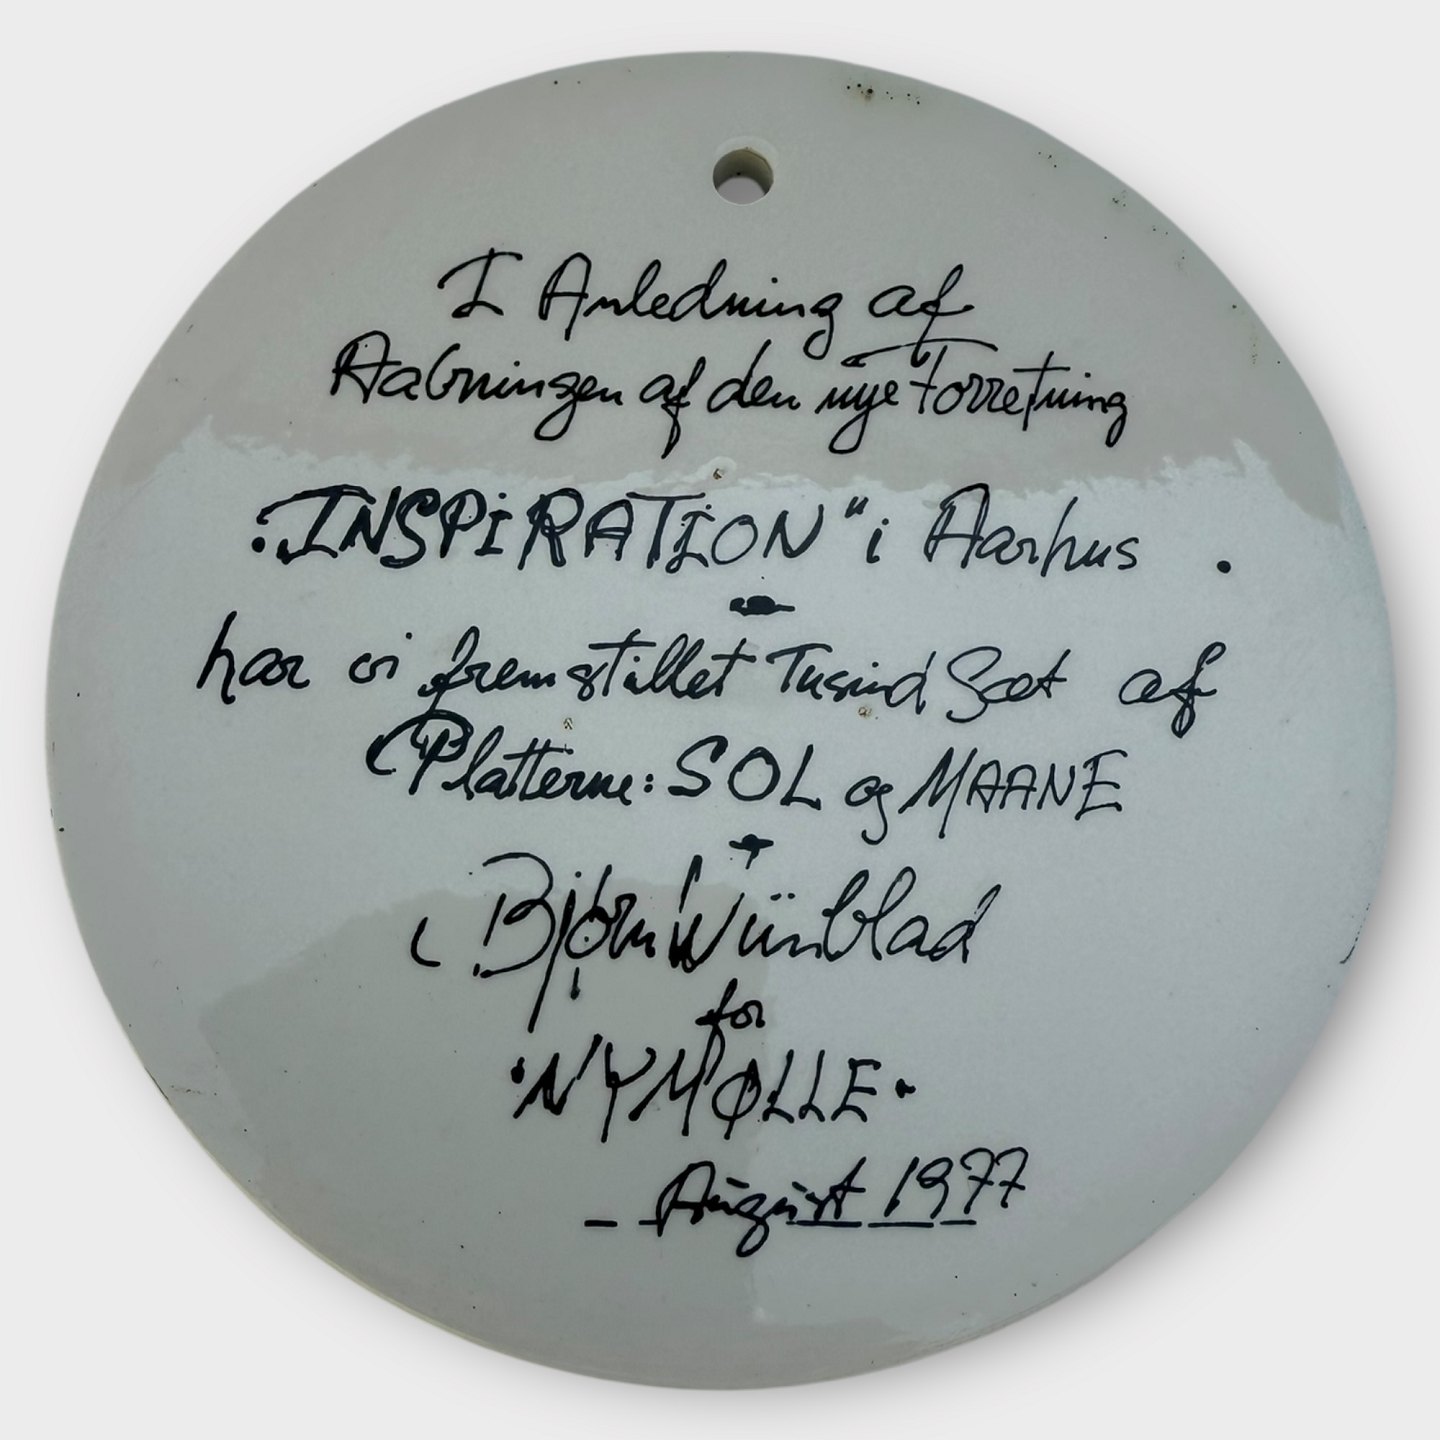 I Anledning af
Aabningen af den nye Forretning
"INSPIRATION" i Aarhus .
har vi fremstillet Tusind Sæt af
Platterne: SOL og MAANE
Bjørn Wiinblad
for
·NYMØLLE·
_ August 1977